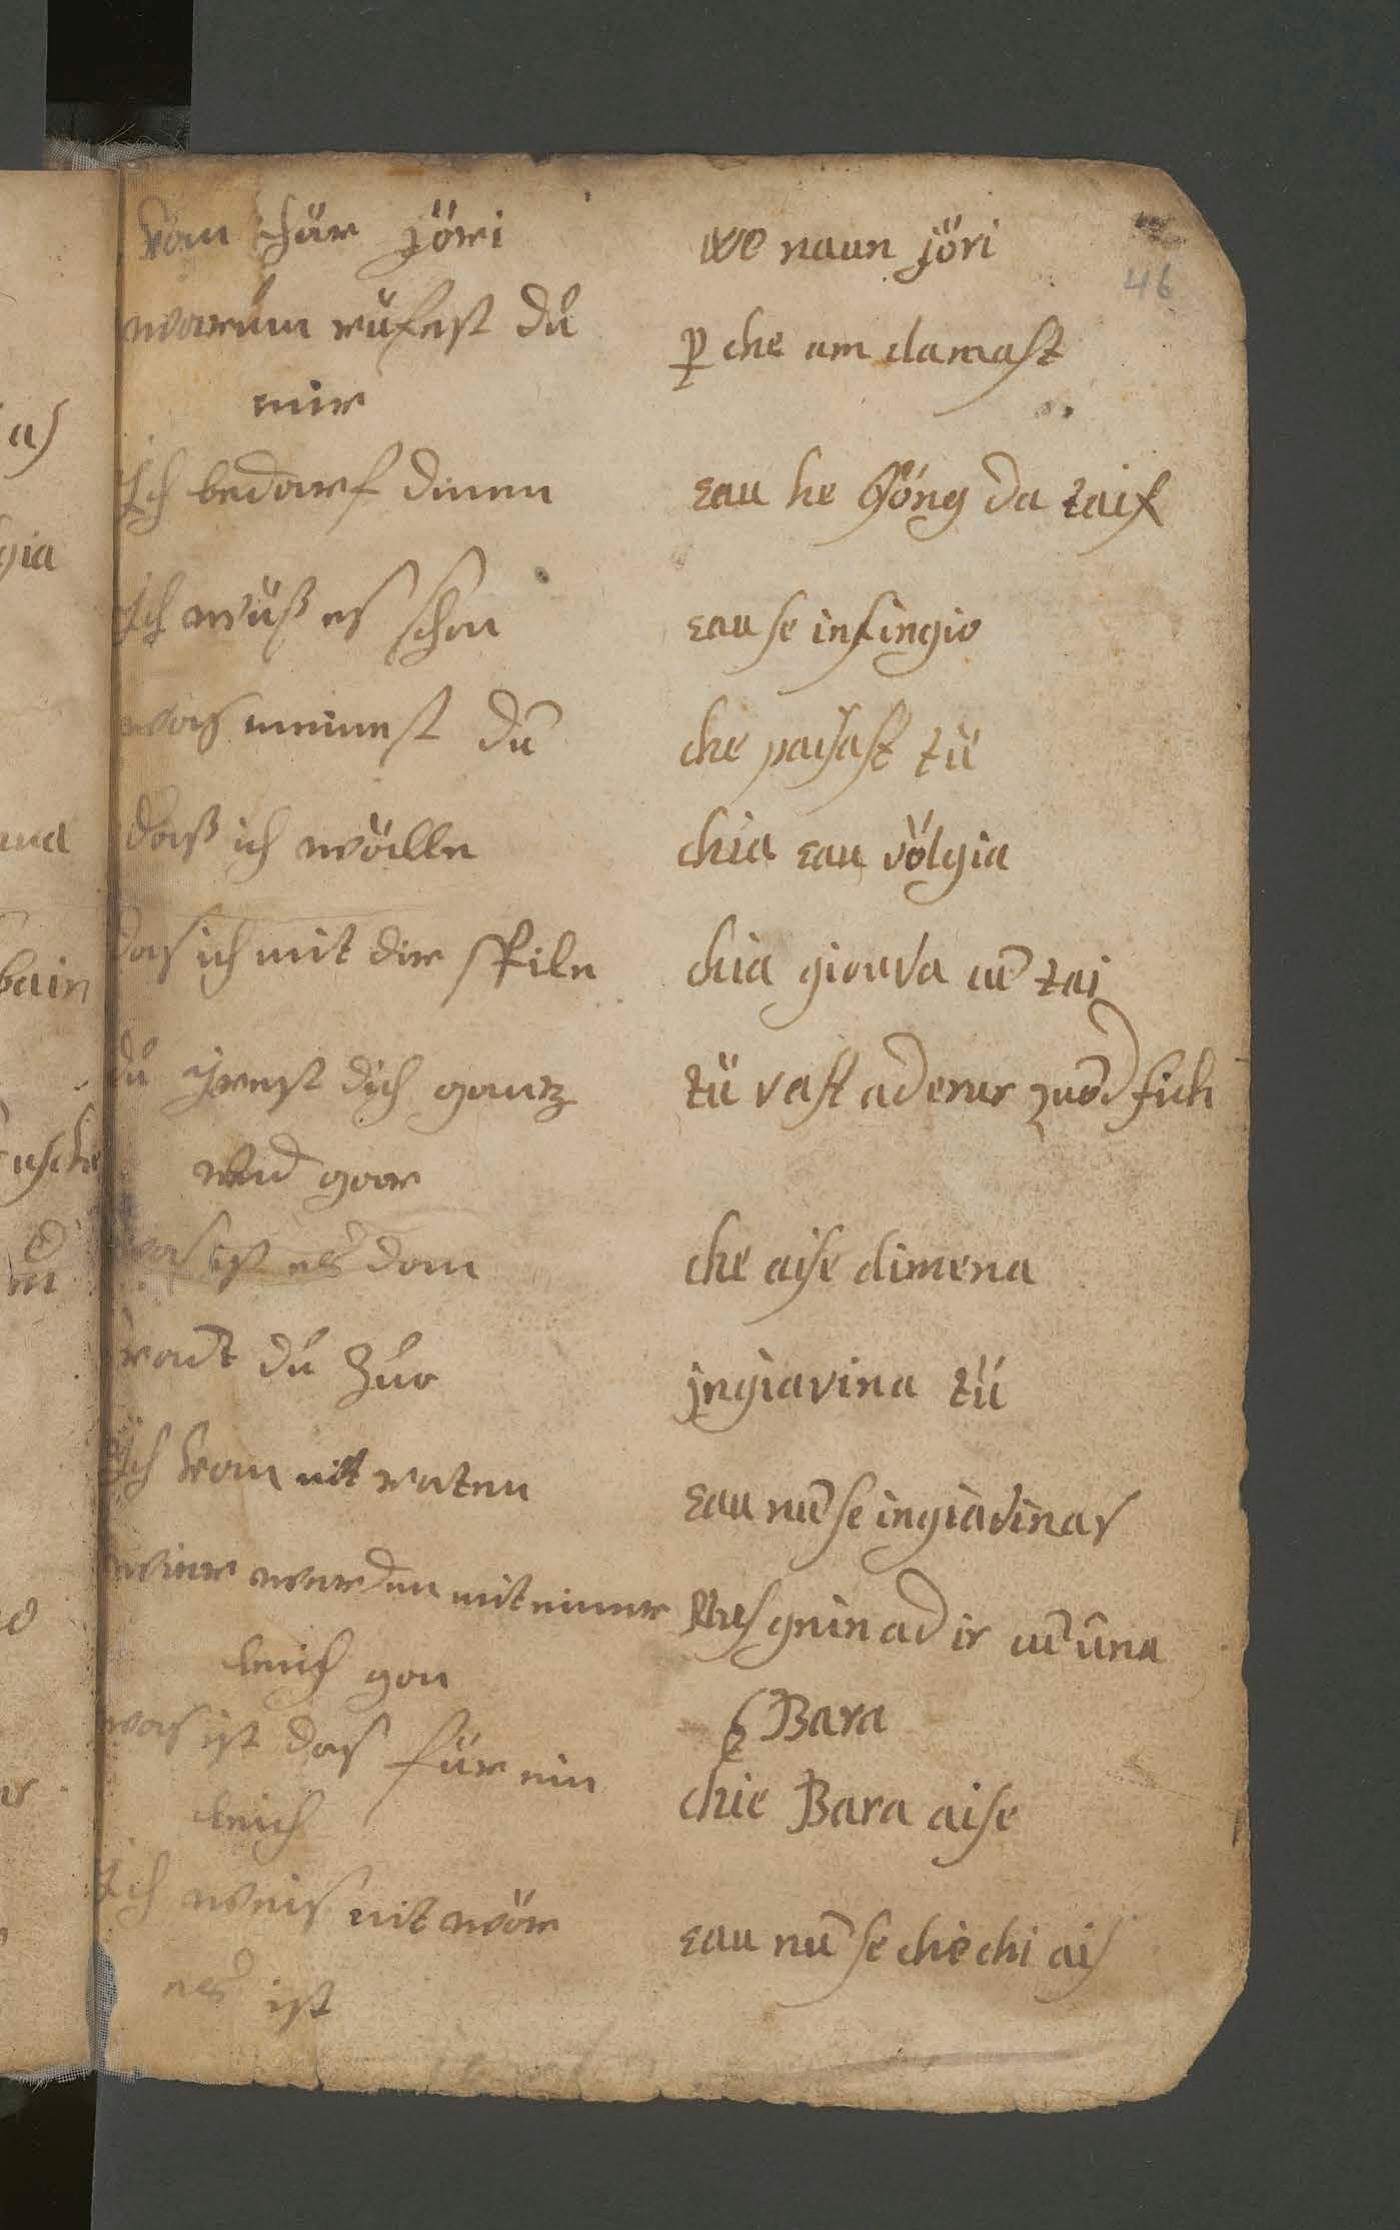 46
kom här jöri
we naun jöri
warum rüfest dů
mir
ꝑ che am clamast
Ich bedarf dinen
eau he söng da tais
Ich wüß es schon
eau se infingio
was meinest dŭ
che paisast tü
daß ich wölle
chia eau völgia
das ich mit dir spile
chia giouva cū tai
dů irest dich gantz
vnd gar
tü vast ad erur zuōd fich
was ist es dan
che aise dimena
radt dů zuo
ingiavina tü
Ich kan nit raten
eau nū se ingiavinar
wier werden mit einer
leich gon
gnin ad ir cū üna
Bara
was ist das für ein
leich
chie Bara aise
Ich weis nit wör
es ist
eau nū se chie chi ais